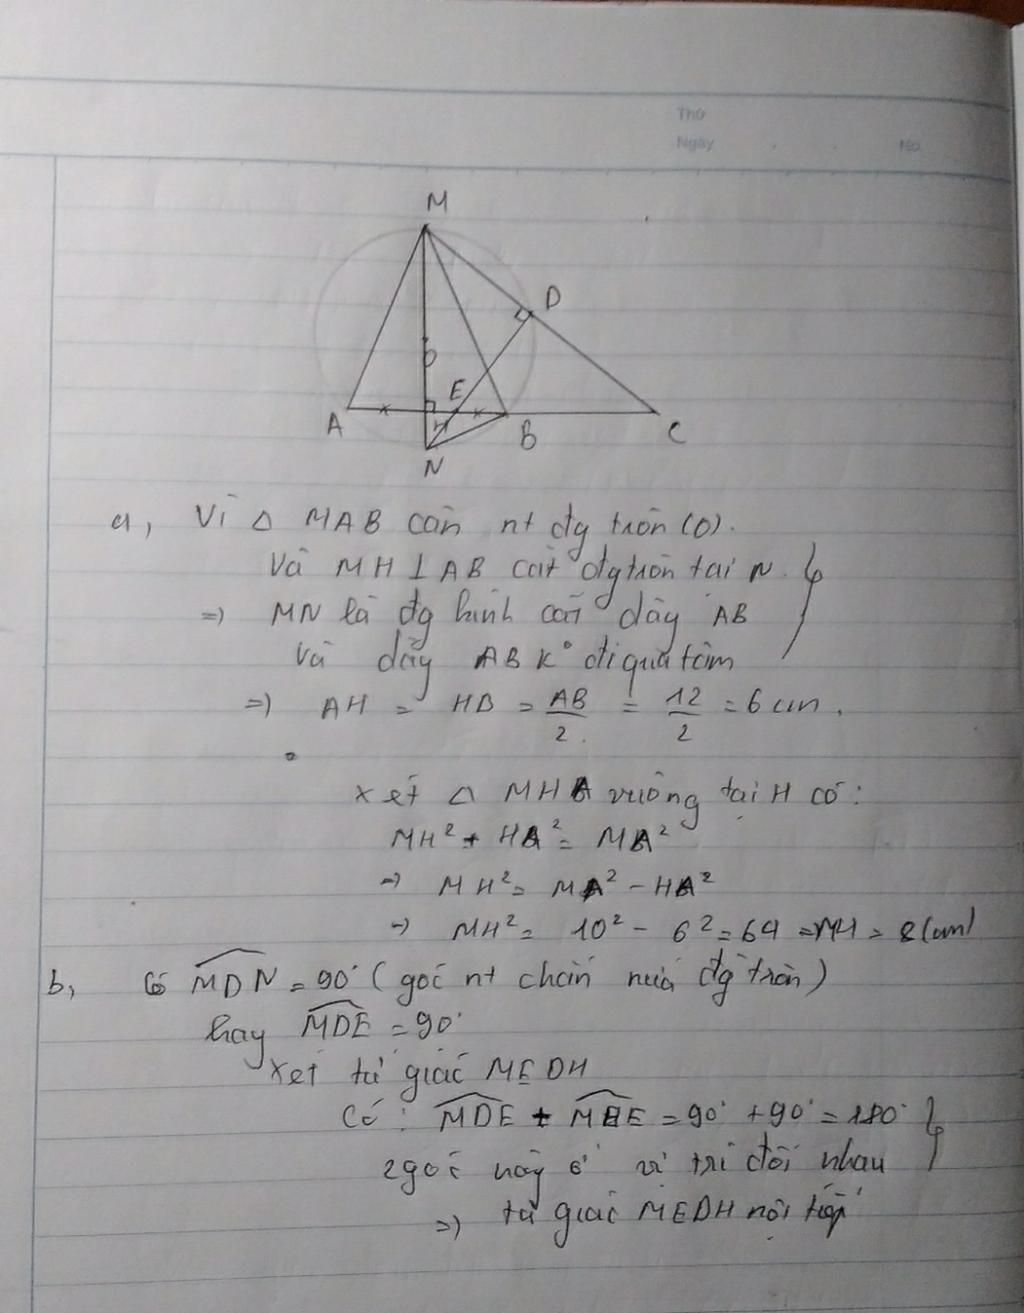 Thứ
Ngày No
M
D
O
E
A H B C
N
a, Vì △ MAB cân nt đg tròn (O).
Và MH ⊥ AB cắt đg tròn tại N
=> MN là đg kính cắt dây AB
Và dây AB k° đi qua tâm
=> AH = HB = AB/2 = 12/2 = 6 cm.
xét △ MHA vuông tại H có:
MH² + HA² = MA²
=> MH² = MA² - HA²
=> MH² = 10² - 6² = 64 => MH = 8 (cm)
b, Có MDN = 90° (góc nt chắn nửa đg tròn)
hay MDE = 90°
xét tứ giác MEDH
Có: MDE + MHE = 90° + 90° = 180°
2 góc này ở vị trí đối nhau
=> tứ giác MEDH nội tiếp